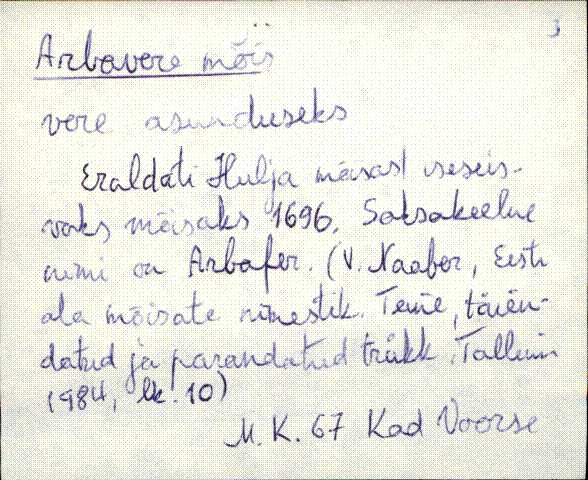 3
Arbavere mõis
vere asunduseks
Eraldati Hulja mõisast iseseis-
vaks mõisaks 1696. Saksakeelne
nimi on Arbafer. (V. Naaber, Eesti
ala mõisate nimestik. Teine, täien-
datud ja parandatud trükk. Tallinn
1984, lk. 10)
M. K. 67 Kad Voorse